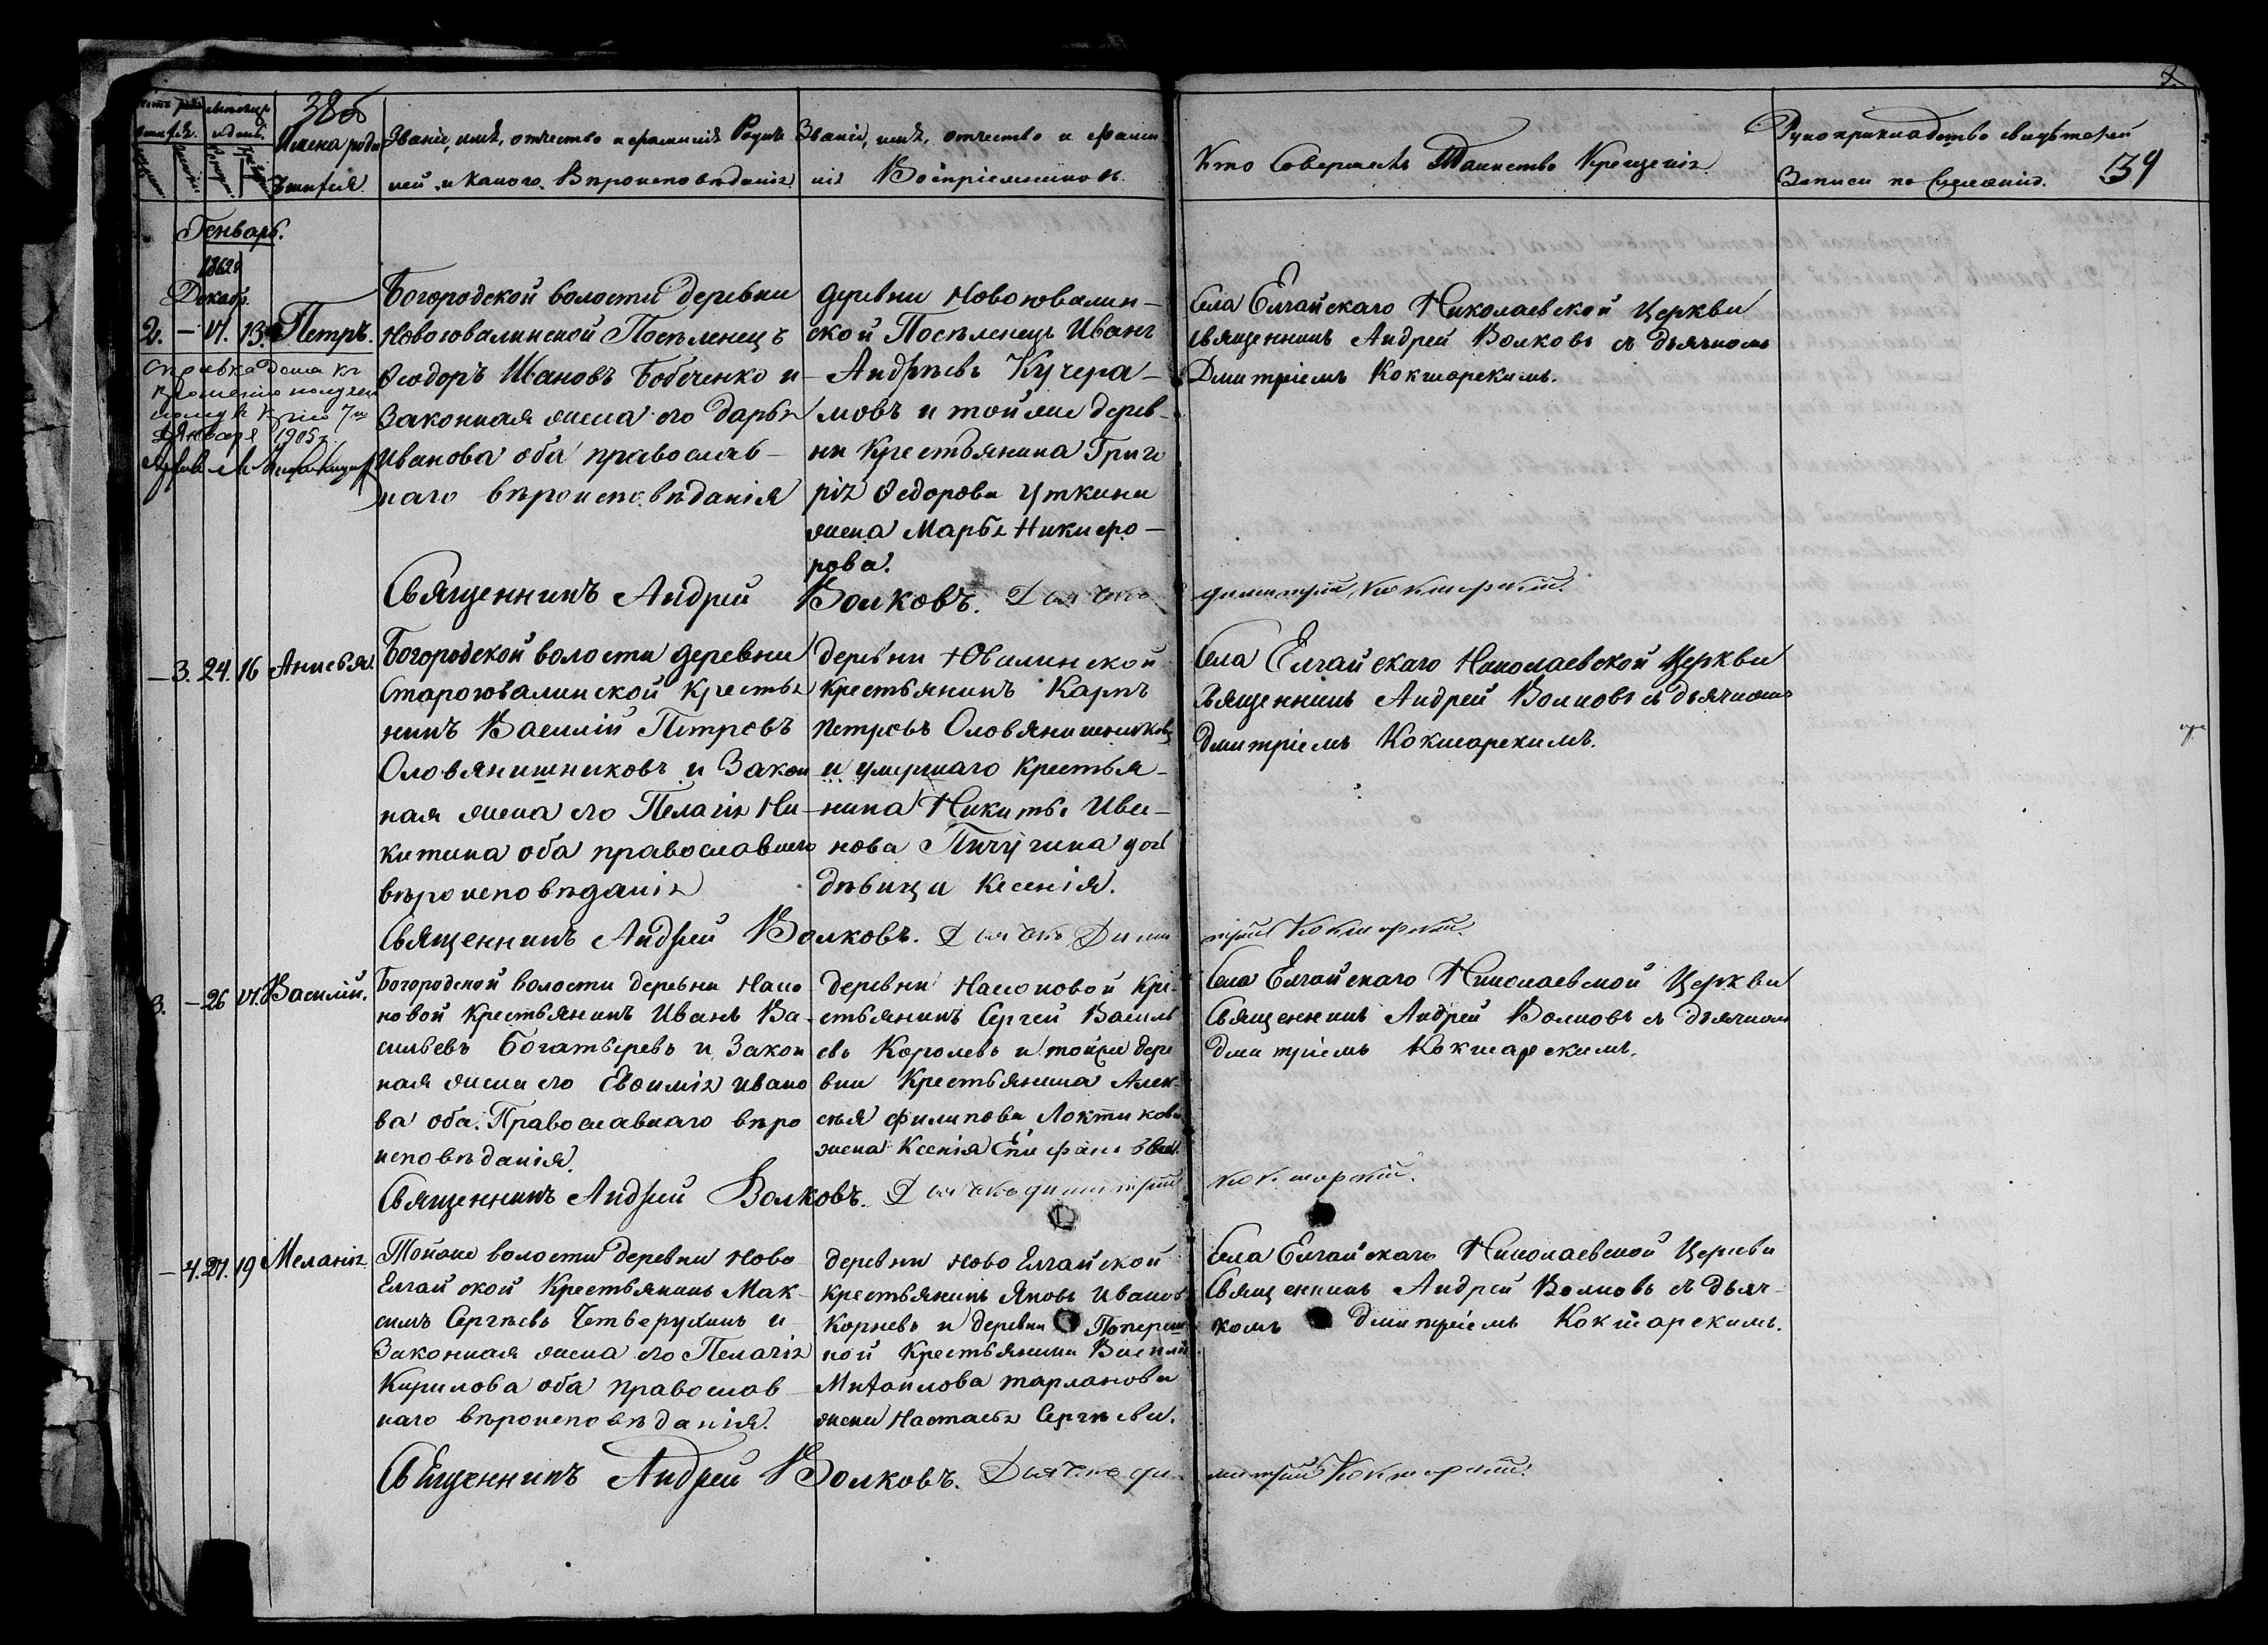 38об
39
Мѣсяцъ
и день.
Имена роди
вшихся.
Званіе, имя, отчество и фамилія Роди
лей, и какого Вѣроисповѣданія
Званіе, имя, отчество и фами
лія Воспріемниковъ.
Кто Совершалъ Таинство Крещенія
Рукоприкладство свидѣтелей
Записи по Желанію.
Генварь.
1862 г
Декабр.
2. — 17. 13. Петръ.
Богородской волости деревни
Новоювалинской Поселенецъ
Ѳеодоръ Ивановъ Бобеченко и
Законная жена его Дарья
Иванова оба православ-
наго вѣроисповѣданія
деревни Новоювалин-
ской Поселенецъ Иванъ
Андрѣевъ Кучера-
мовъ и тойже дерев-
ни Крестьянина Григо
рія Ѳедорова Уткина
жена Марья Никифо-
рова.
Села Елгайскаго Николаевской Церкви
священникъ Андрей Волковъ съ дьячкомъ
Дмитріемъ Кокшарскимъ.
Справка дана къ
прошенію
Января 1905 г.
Священникъ Андрей Волковъ. Дьячекъ Димитрій Кокшарскій.
— 3. 24. 16 Анисья.
Богородской волости деревни
Староювалинской Крестья
нинъ Василій Петровъ
Оловянишниковъ и Закон
ная жена его Пелагія Ни-
китина оба православнаго
вѣроисповѣданія
деревни Ювалинской
Крестьянинъ Карпъ
Петровъ Оловянишниковъ
и умершаго Крестья-
нина Никиты Ива-
нова Пичугина дочь
дѣвица Ксенія.
Села Елгайскаго Николаевской Церкви
Священникъ Андрей Волковъ съ дьячкомъ
Дмитріемъ Кокшарскимъ.
Священникъ Андрей Волковъ. Дьячекъ Димитрій Кокшарскій.
3. — 26 17. Василій.
Богородской волости деревни Насо
новой Крестьянинъ Иванъ Ва-
сильевъ Богатыревъ и Закон
ная жена его Евѳимія Ивано
ва оба Православнаго вѣро
исповѣданія.
Деревни Насоновой Кре-
стьянинъ Сергей Василь
евъ Королевъ и тойже дере
вни Крестьянина Алек-
сѣя Филипова Локтикова
жена Ксенія Епифанова.
Села Елгайскаго Николаевской Церкви
Священникъ Андрей Волковъ съ дьячкомъ
Дмитріемъ Кокшарскимъ.
Священникъ Андрей Волковъ. Дьячекъ Димитрій Кокшарскій.
— 4. 27. 19 Меланія
Тойже волости деревни Ново
Елгайской Крестьянинъ Мак-
симъ Сергѣевъ Четверухинъ и
Законная жена его Пелагія
Кирилова оба православ-
наго вѣроисповѣданія.
деревни Ново Елгайской
Крестьянинъ Яковъ Иванов
Корневъ и деревни Попереч
ной Крестьянина Василія
Михайлова Тарланова
жена Настасья Сергѣева.
Села Елгайскаго Николаевской Церкви
Священникъ Андрей Волковъ съ дьяч-
комъ Дмитріемъ Кокшарскимъ.
Священникъ Андрей Волковъ. Дьячекъ Димитрій Кокшарскій.